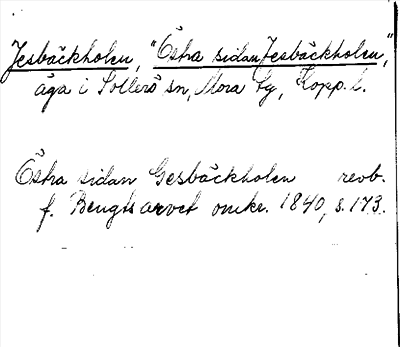 Jesbäckholen, "Östra sidan Jesbäckholen,"
äga i Sollerö sn, Mora tg, Kopp. l.
Östra sidan Gesbäckholen revb.
f. Bengtsarvet omkr. 1840, s. 173.